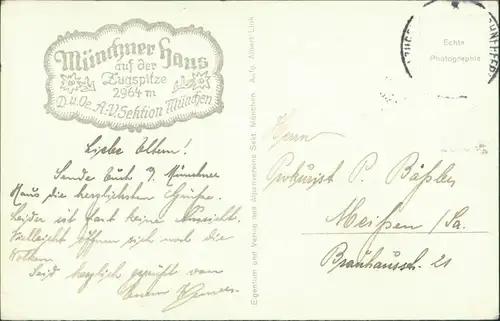 Münchner Haus
auf der
Zugspitze
2964 m
D.u.Oe.A.-V. Sektion München
Liebe Eltern!
Sende Euch v. Münchner
Haus die herzlichsten Grüße.
Leider ist fast keine Aussicht.
Vielleicht öffnen sich noch die
Wolken.
Seid herzlich gegrüßt von
Eurem
Eigentum und Verlag der Alpenvereins Sekt. München. Aufg. Albert Link
Echte
Photographie
Herrn
Prokurist P. Bäßler
Meißen /Sa.
Brauhausstr. 21